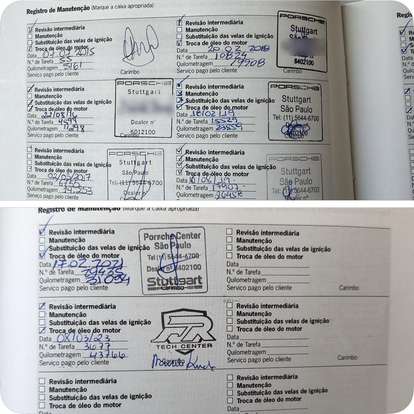 Registro de Manutenção (Marque a caixa apropriada)
Revisão intermediária
Manutenção
Substituição das velas de ignição
Troca de óleo do motor
Data
N.º de Tarefa
Quilometragem
Serviço pago pelo cliente
Carimbo
Revisão intermediária
Manutenção
Substituição das velas de ignição
Troca de óleo do motor
Data 20.02.2018
N.º de Tarefa
Quilometragem
Serviço pago pelo cliente
PORSCHE
Stuttgart
6402100
Revisão intermediária
Manutenção
Substituição das velas de ignição
Troca de óleo do motor
Data 22/08/16
N.º de Tarefa
Quilometragem
Serviço pago pelo cliente
PORSCHE
Stuttgart
Dealer nº
6012100
Revisão intermediária
Manutenção
Substituição das velas de ignição
Troca de óleo do motor
Data 18/02/19
N.º de Tarefa
Quilometragem
Serviço pago pelo cliente
PORSCHE
Stuttgart
São Paulo
Tel: (11) 5644-6700
Revisão intermediária
Manutenção
Substituição das velas de ignição
Troca de óleo do motor
Data
N.º de Tarefa
Quilometragem
Serviço pago pelo cliente
PORSCHE
Stuttgart
São Paulo
Revisão intermediária
Manutenção
Substituição das velas de ignição
Troca de óleo do motor
Data
N.º de Tarefa
Quilometragem
Serviço pago pelo cliente
PORSCHE
Stuttgart
São Paulo
Tel: (11) 5644-6700
Registro de Manutenção (Marque a caixa apropriada)
Revisão intermediária
Manutenção
Substituição das velas de ignição
Troca de óleo do motor
Data 17.02.2021
N.º de Tarefa
Quilometragem
Serviço pago pelo cliente
Porsche Center
São Paulo
Tel: (11) 5644-6700
Dealer nº 6402100
Stuttgart
Carimbo
Revisão intermediária
Manutenção
Substituição das velas de ignição
Troca de óleo do motor
Data
N.º de Tarefa
Quilometragem
Serviço pago pelo cliente
Carimbo
Revisão intermediária
Manutenção
Substituição das velas de ignição
Troca de óleo do motor
Data 08/03/23
N.º de Tarefa 3677
Quilometragem 43766
Serviço pago pelo cliente
TECH CENTER
Revisão intermediária
Manutenção
Substituição das velas de ignição
Troca de óleo do motor
Data
N.º de Tarefa
Quilometragem
Serviço pago pelo cliente
Carimbo
Revisão intermediária
Manutenção
Substituição das velas de ignição
Revisão intermediária
Manutenção
Substituição das velas de ignição